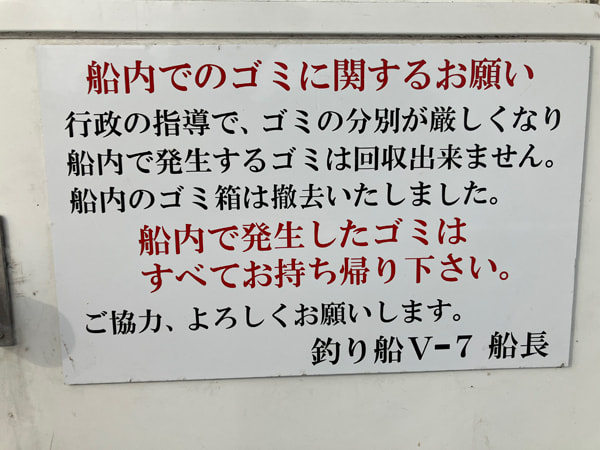 船内でのゴミに関するお願い
行政の指導で、ゴミの分別が厳しくなり
船内で発生するゴミは回収出来ません。
船内のゴミ箱は撤去いたしました。
船内で発生したゴミは
すべてお持ち帰り下さい。
ご協力、よろしくお願いします。
釣り船V-7 船長